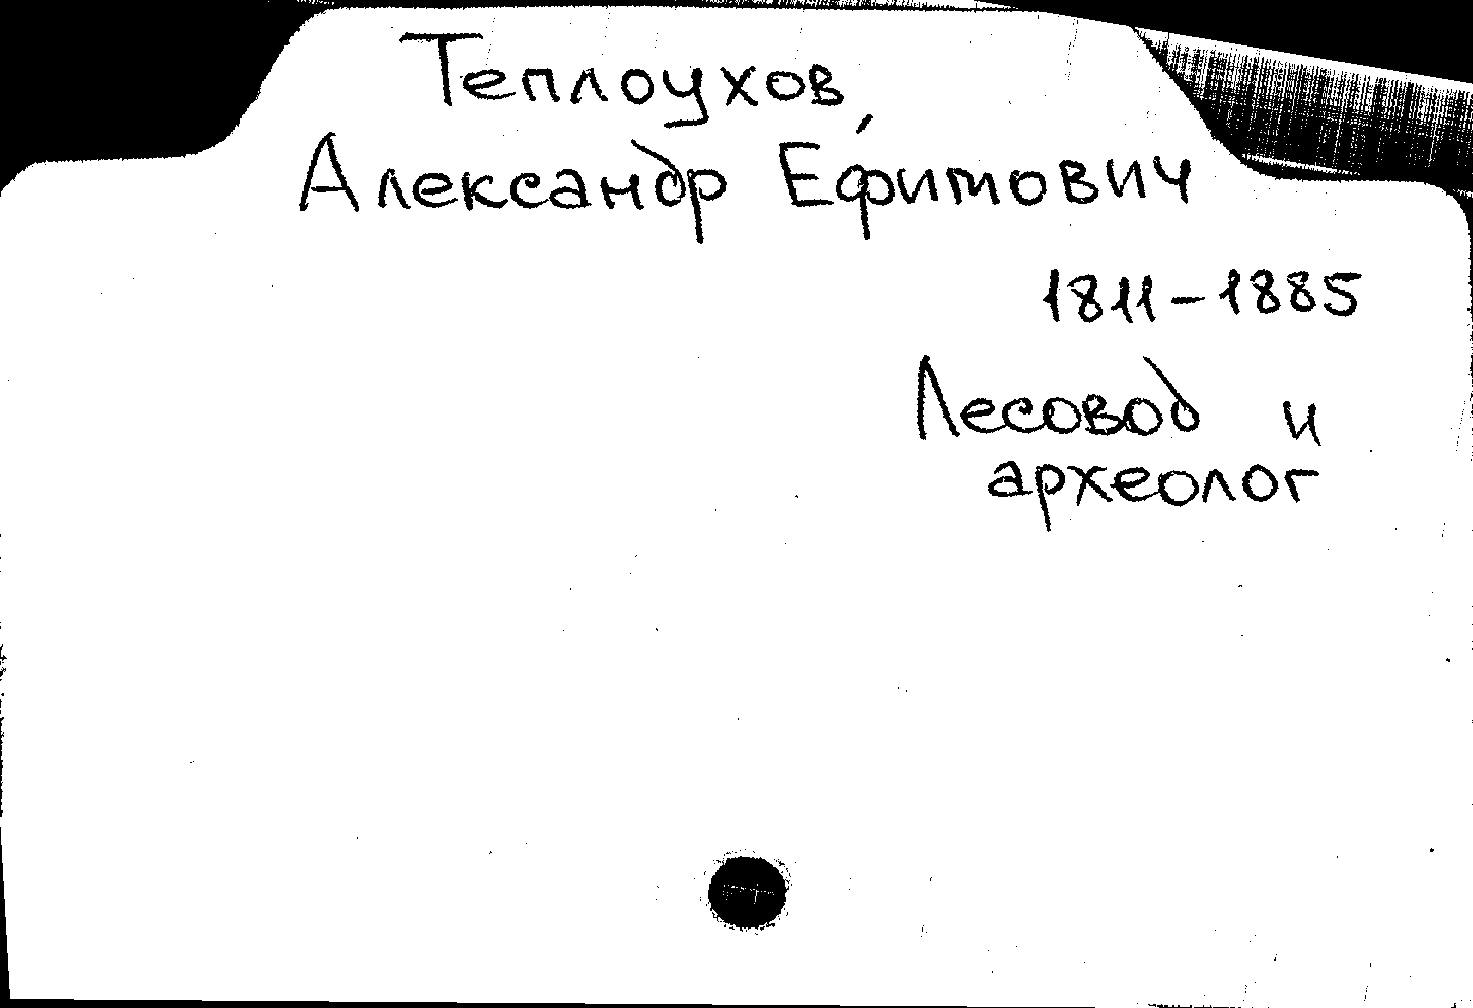 Теплоухов,
Александр Ефимович
1811-1885
Лесовод и
археолог